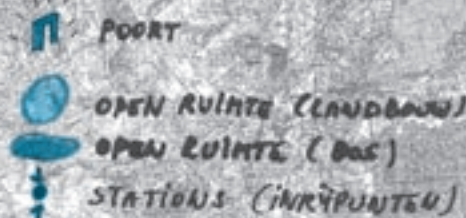 POORT
OPEN RUIMTE (LANDBOUW)
OPEN RUIMTE (BOS)
STATIONS (INRIJPUNTEN)